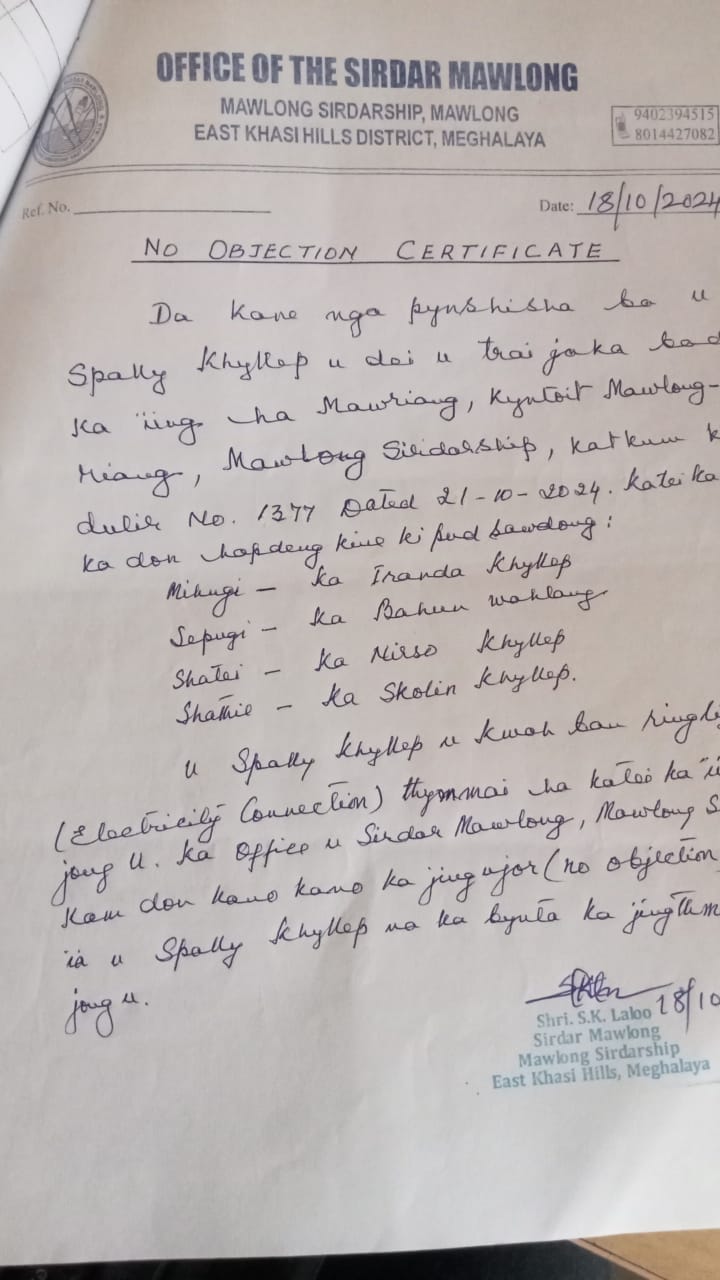 OFFICE OF THE SIRDAR MAWLONG
MAWLONG SIRDARSHIP, MAWLONG
EAST KHASI HILLS DISTRICT, MEGHALAYA
9402394515
8014427082
Ref. No.
Date: 18/10/2024
NO OBJECTION CERTIFICATE
Da kane nga pynshisha ba u
Spally Khyllep u dei u trai jaka bad
ka ïing ha Mawriang, Kyntoit Mawlong-
riang, Mawlong Sirdarship, katkum k
dulir No. 1377 Dated 21-10-2024. Katei ka
ka don hapdeng kine ki pud sawdong:
Mihngi - ka Iranda Khyllep
Sepngi - ka Bahun Wahlang
Shatei - ka Nirso Khyllep
Shathie - ka Skolin Khyllep.
U Spally Khyllep u kwah ban ring
(Electricity Connection) thymmai ha katei ka
jong u. Ka Office u Sirdar Mawlong, Mawlong S
Kam don kano kano ka jingujor (no objection
ïa u Spally Khyllep na ka bynta ka
jong u.
18/10
Shri. S.K. Laloo
Sirdar Mawlong
Mawlong Sirdarship
East Khasi Hills, Meghalaya